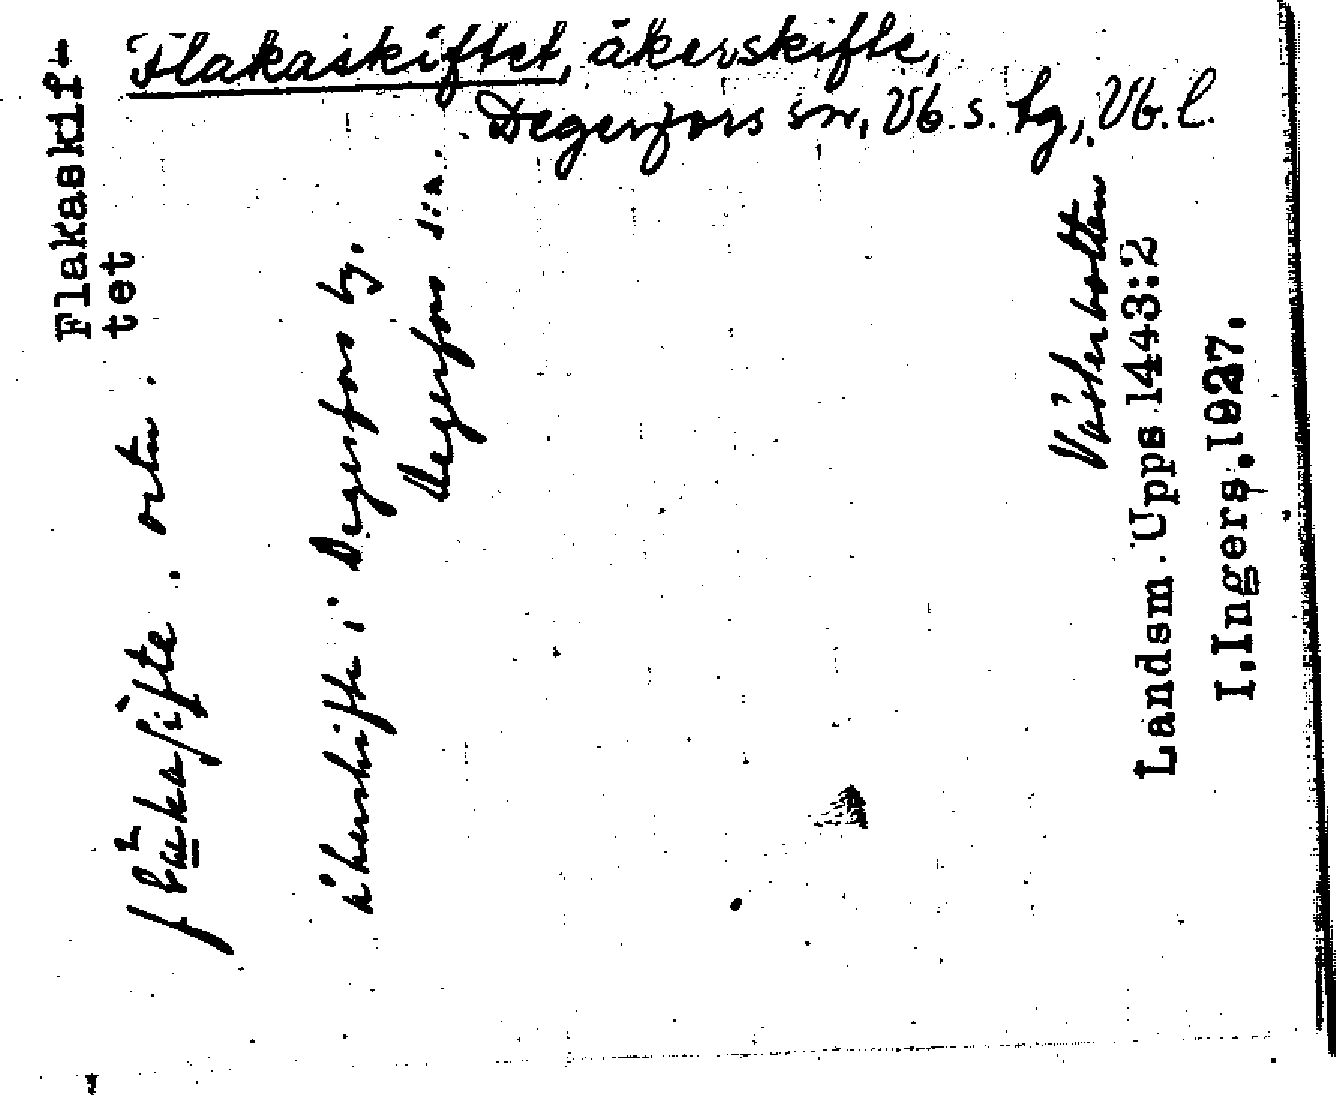 Flakaskiftet, åkerskifte,
Degerfors sn, Vb. s. hg, Vb. l.
Flakaskif-
tet
ortn.
åkerskifte i Degerfors by.
Degerfors sn.
Västerbotten
Landsm. Upps 1443:2
I. Ingers. 1927.